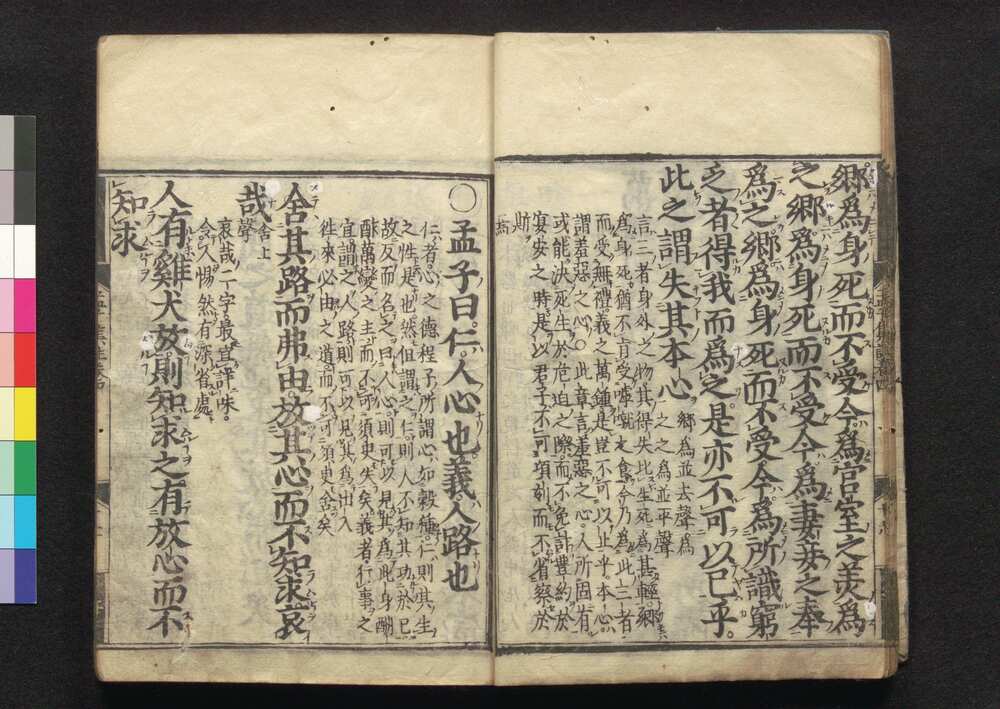 鄉爲身死而不受今爲宮室之美爲
之鄉爲身死而不受今爲妻妾之奉
爲之鄉爲身死而不受今爲所識窮
乏者得我而爲之是亦不可以已乎
此之謂失其本心
鄉爲並去聲爲
之之爲並平聲
言三者身外之物其得失比生死爲甚輕鄉
爲身死猶不肯受嘑蹴之食今乃爲此三者
而受無禮義之萬鍾是豈不可以止乎本心
謂羞惡之心〇此章言羞惡之心人所固有
或能決死生於危迫之際而不免計豐約於
宴安之時是以君子不可頃刻而不省察於
斯焉
〇孟子曰仁人心也義人路也
仁者心之德程子所謂心如穀種仁則其生
之性是也然但謂之仁則人不知其切於己
故反而名之曰人心則可以見其爲此身酬
酢萬變之主而不可須臾失矣義者行事之
宜謂之人路則可以見其爲出入
往來必由之道而不可須臾舍矣
舍其路而弗由放其心而不知求哀
哉
舍上
聲
哀哉二字最宜詳味
令人惕然有深省處
人有雞犬放則知求之有放心而不
知求